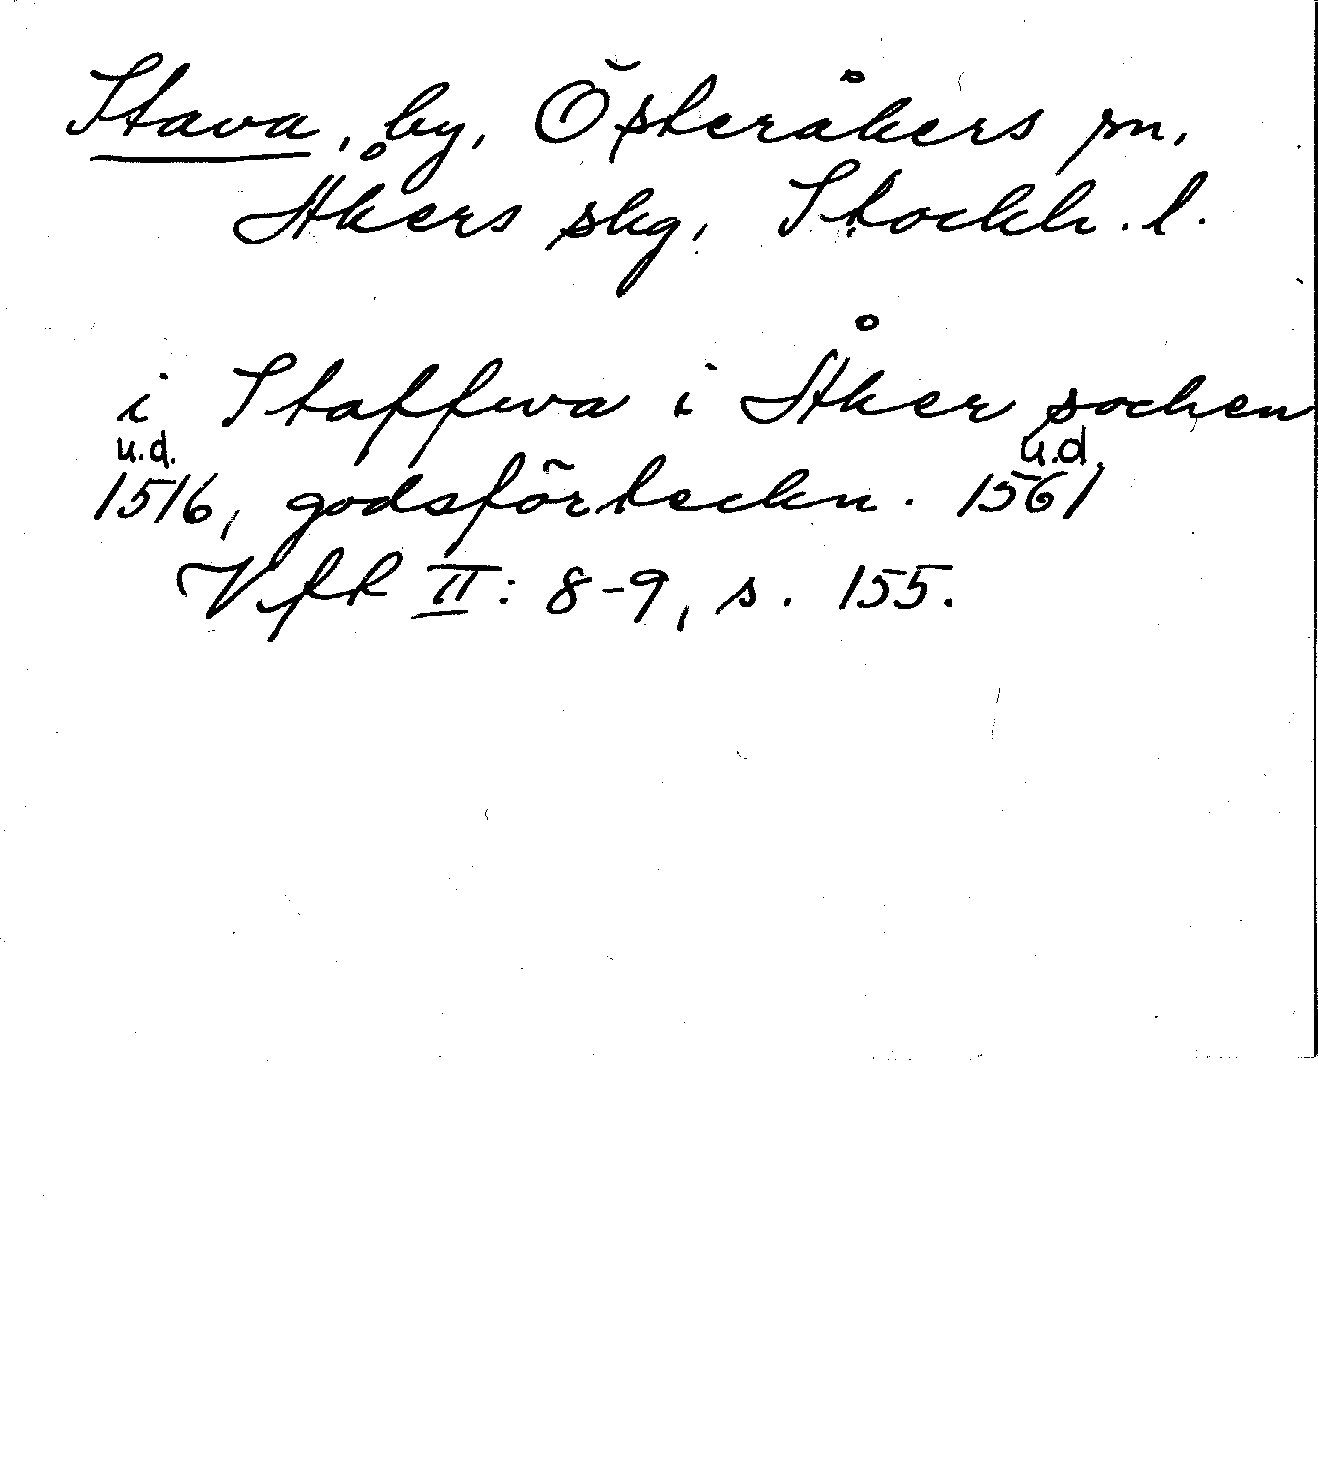 Stava, by, Österåkers sn,
Åkers skg, Stockh. l.
i Staffwa i Åker sochen
u.d. u.d.
1516, godsförteckn. 1561
VffR II: 8-9, s. 155.